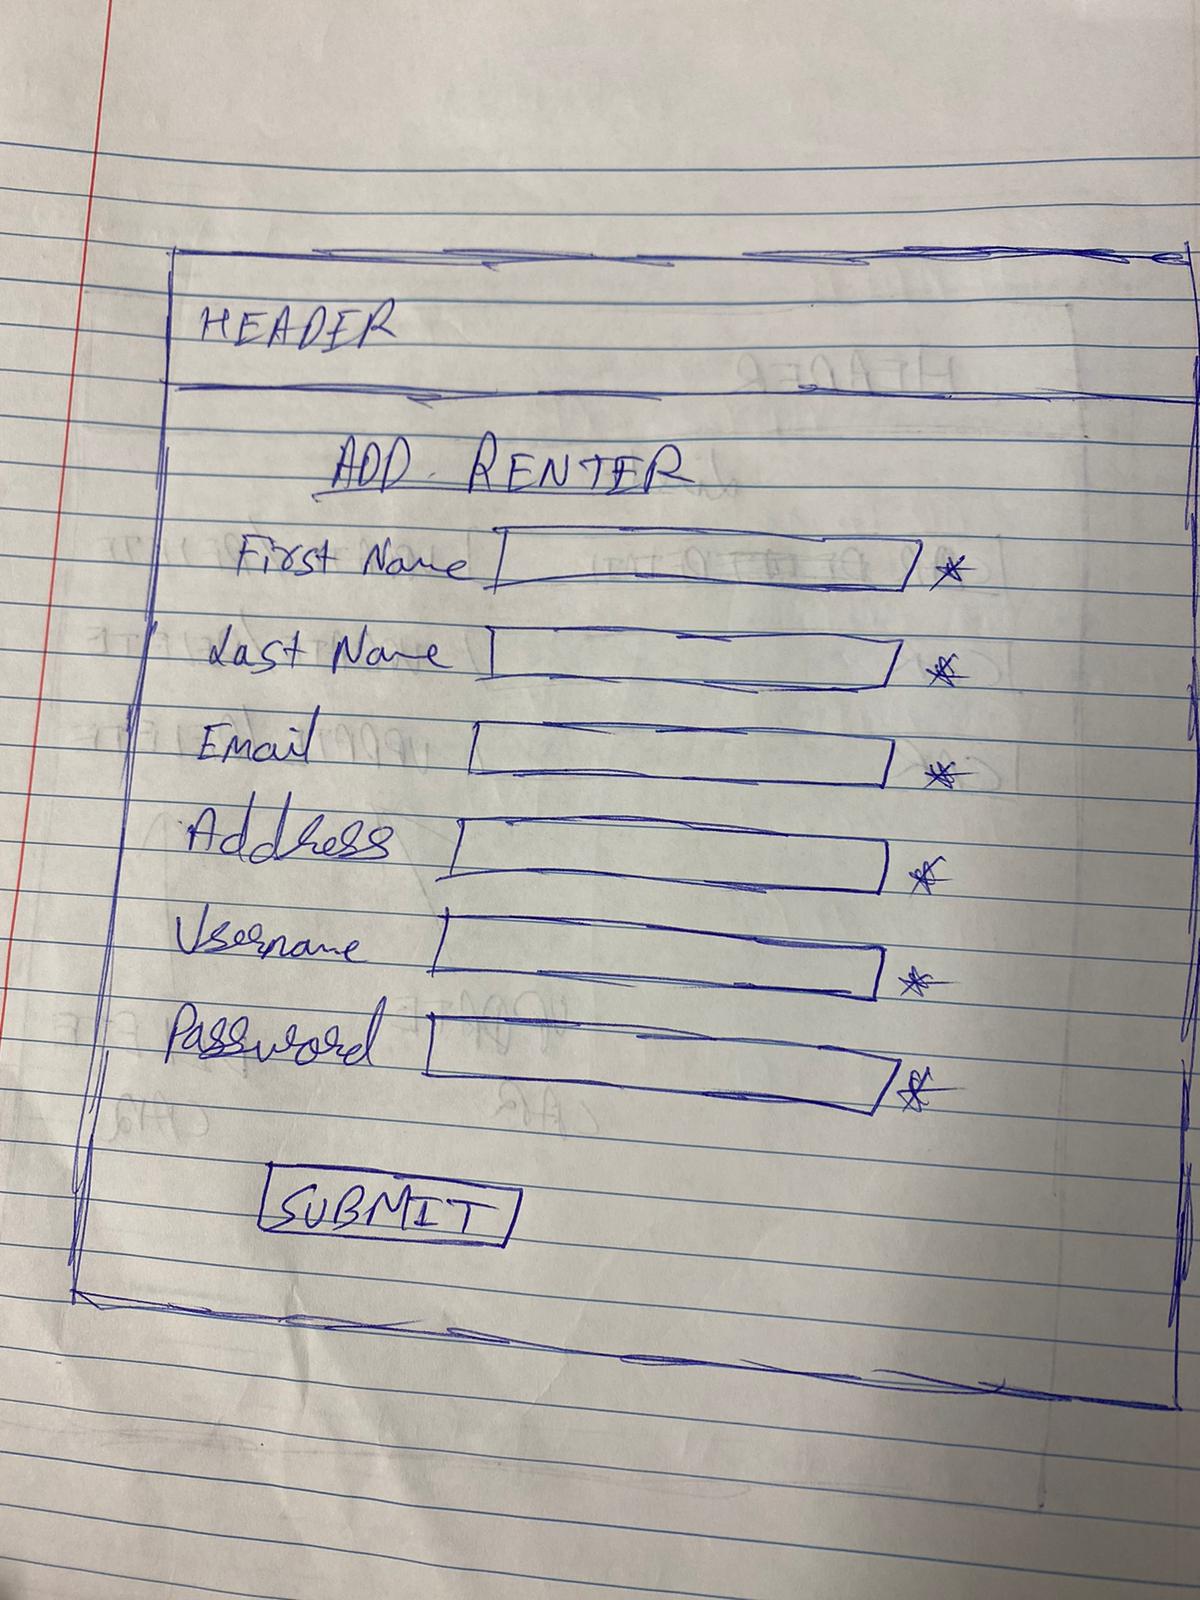 HEADER
ADD RENTER
First Name *
Last Name *
Email *
Address *
Username *
Password *
SUBMIT